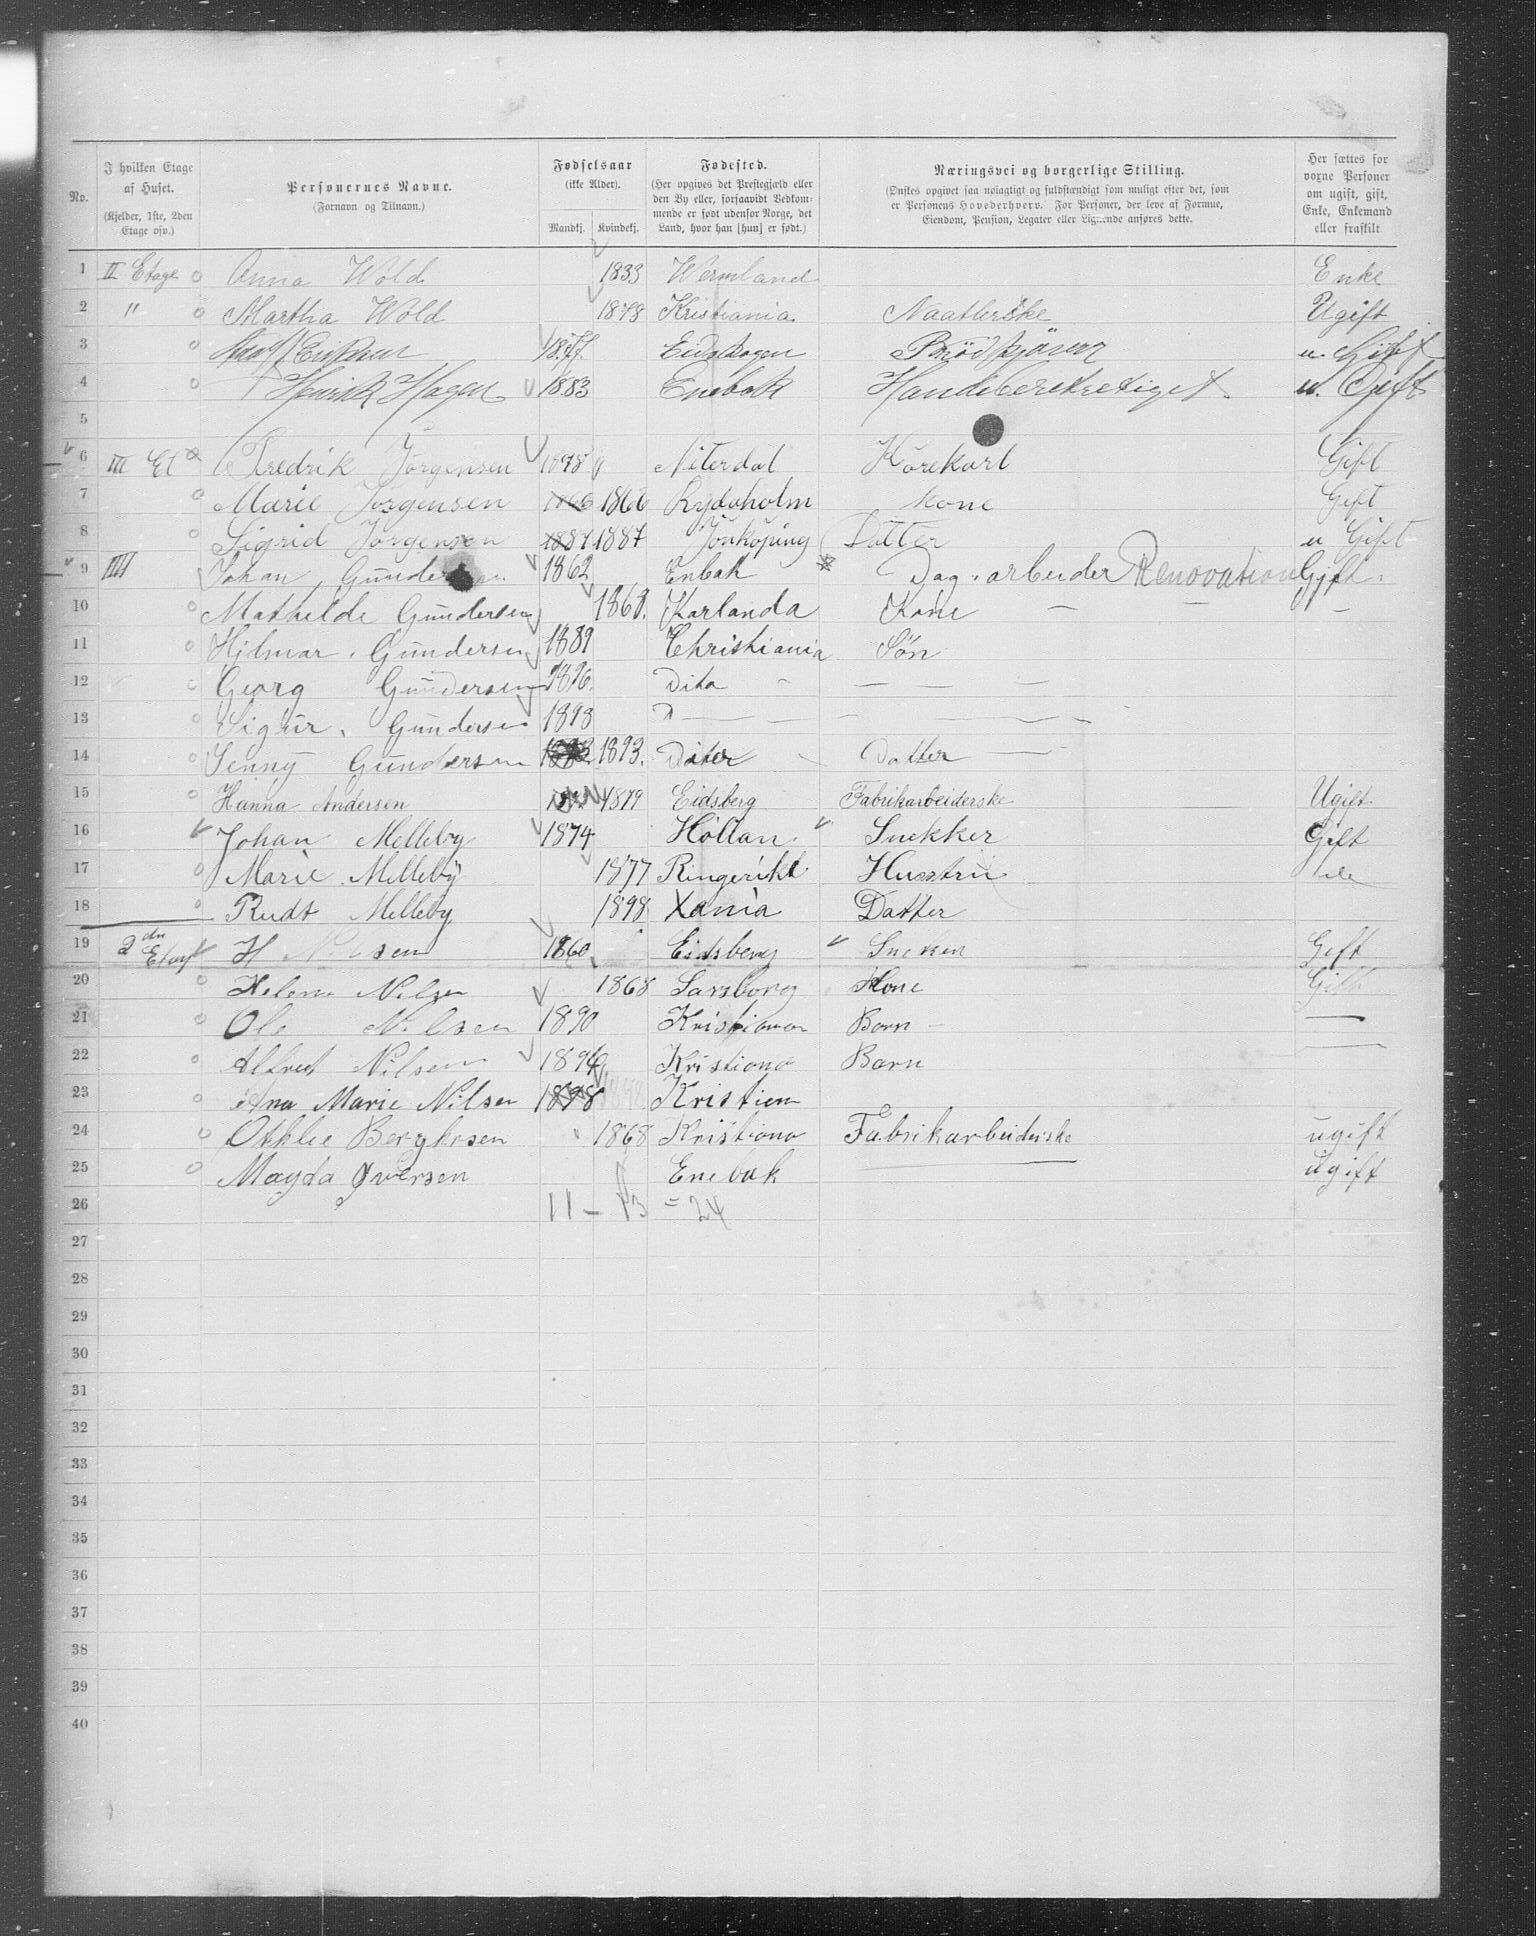 No. | I hvilken Etage af Huset. (Kjelder, 1ste, 2den Etage osv.) | Personernes Navne. (Fornavn og Tilnavn.) | Fødselsaar (ikke Alder). Mandkj. Kvindekj. | Fødested. (Her opgives det Prestegjæld eller den By eller, forsaavidt Vedkommende er født udenfor Norge, det Land, hvor han [hun] er født.) | Næringsvei og borgerlige Stilling. (Ønskes opgivet saa nøiagtigt og fuldstændigt som muligt efter det, som er Personens Hovederhverv. For Personer, der leve af Formue, Eiendom, Pension, Legater eller Lignende anføres dette. | Her sættes for voxne Personer om ugift, gift, Enke, Enkemand eller fraskilt
1 II Etage Anna Wold 1833 Wermland Enke
2 " Martha Wold 1878 Kristiania Naatlerske Ugift
3 Eriksen 1877 Eidskogen u. Gift
4 Henrik Hagen 1883 Enebak u. Gift
5
6 III Et Fredrik Jörgensen 1878 Niterdal Körekarl Gift
7 Marie Jorgensen 1866 1866 Rydaholm Kone Gift
8 Sigrid Jorgensen 1887 1887 Jönköping Datter u Gift
9 IIII Johan Gundersen 1862 Enbak Dag. arbeider Renovation Gift.
10 Mathilde Gundersen 1868. Karlanda Kone — — —
11 Hjlmar. Gundersen 1889 Christiania Søn
12 Georg Gundersen 1896. Dito — — —
13 Sigur. Gundersen 1898 D — — —
14 Jenny Gundersen 1893. Datter
15 Hanna Andersen 1879 Eidsberg Fabrikarbeiderske Ugift
16 Johan Melleby 1874 Höllan Snekker Gift
17 Marie Melleby 1877 Ringerike Husstru
18 Rudt Melleby 1898 Xania Datter
19 2den Etag H Nilsen 1860 Eidsberg Gift
20 Helene Nilsen 1868 Sarsborg Kone Gift
21 Ole Nilsen 1890 Barn —
22 Alfred Nilsen Kristiana Barn —
23 Ana Marie Nilsen 1898 Kristian
24 Othlie 1868 Kristiana Fabrikarbeiderske ugift
25 Magda Iversen Enebak — ugift
26 11 – 13 = 24
27
28
29
30
31
32
33
34
35
36
37
38
39
40